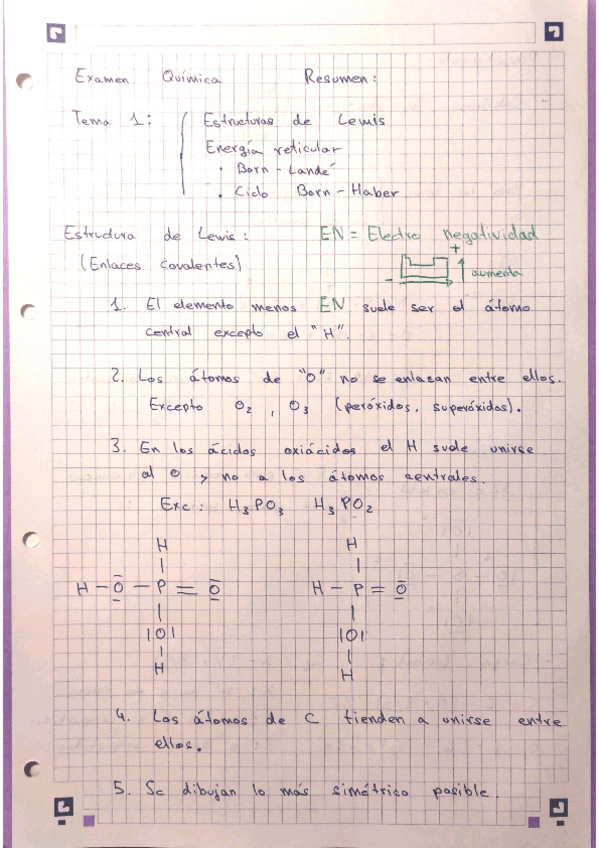 Examen Química Resumen:
Tema 1: Estructuras de Lewis
Energía reticular
• Born-Landé
• Ciclo Born-Haber
Estructura de Lewis: EN = Electro negatividad
(Enlaces covalentes) - + aumenta
1. El elemento menos EN suele ser el átomo
central excepto el "H".
2. Los átomos de "O" no se enlazan entre ellos.
Excepto O₂, O₃ (peróxidos, superóxidos).
3. En los ácidos oxiácidos el H suele unirse
al O y no a los átomos centrales.
Exc: H₃PO₃ H₃PO₂
H H
H - O - P = O H - P = O
|O| |O|
H H
4. Los átomos de C tienden a unirse entre
ellos.
5. Se dibujan lo más simétrico posible.